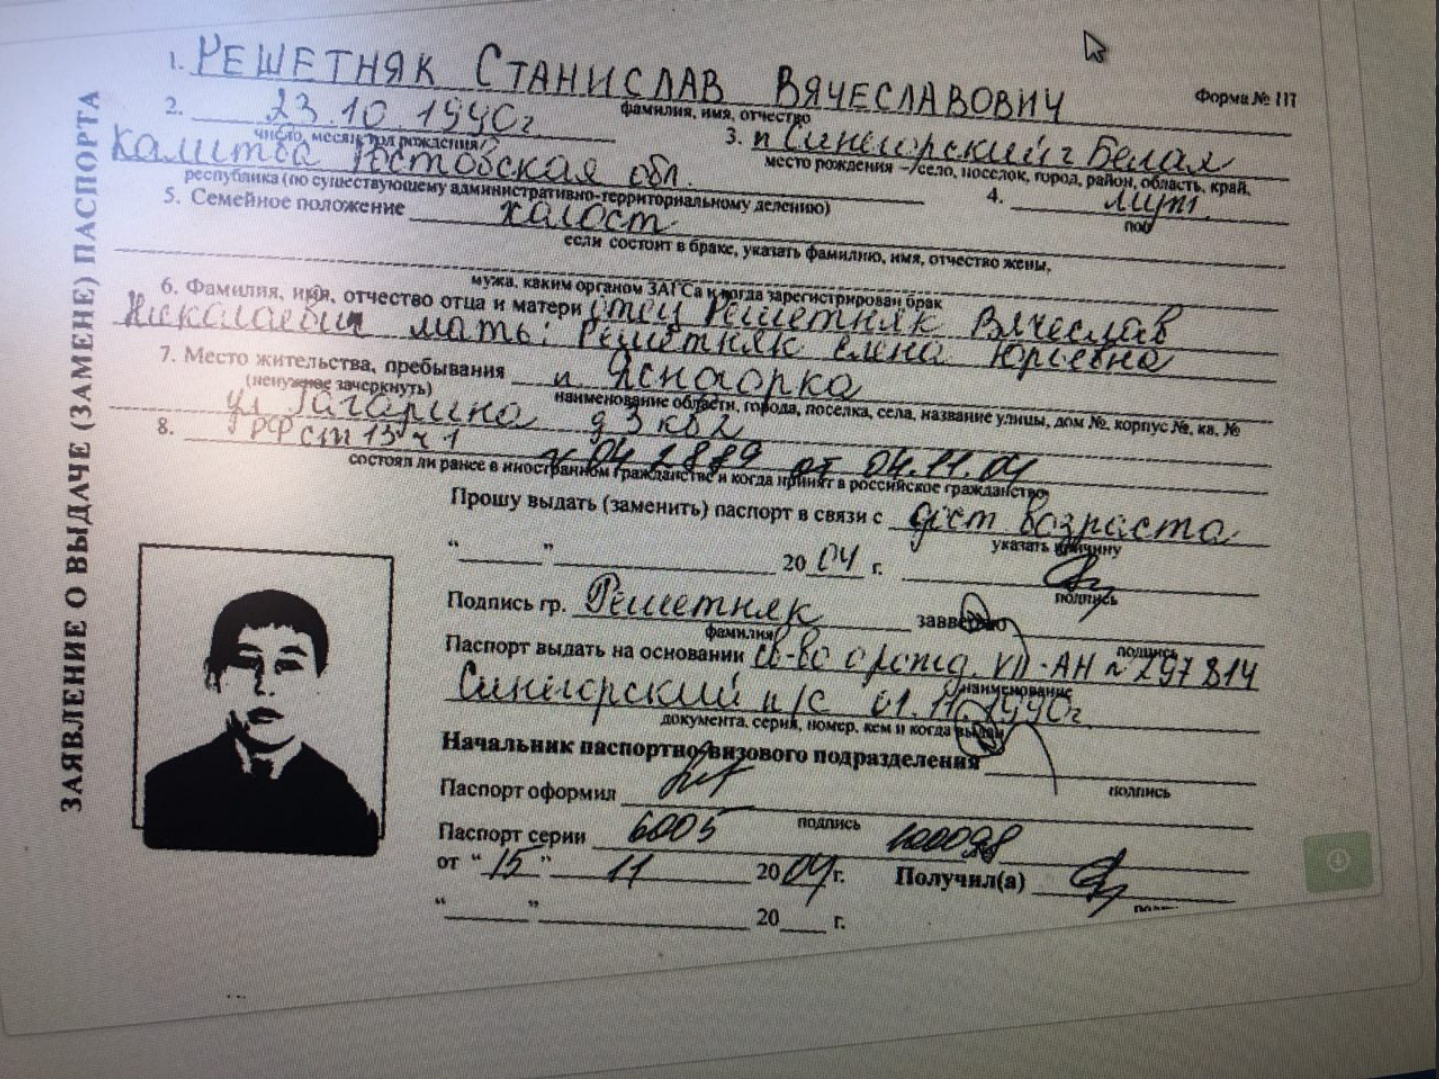 ЗАЯВЛЕНИЕ О ВЫДАЧЕ (ЗАМЕНЕ) ПАСПОРТА
Форма № 1П
1. РЕШЕТНЯК СТАНИСЛАВ ВЯЧЕСЛАВОВИЧ
фамилия, имя, отчество
2. 23.10.1990г 3. п Синегорский г Белая
число, месяц, год рождения место рождения – село, поселок, город, район, область, край,
Калитва Ростовская обл.
республика (по существующему административно-территориальному делению) 4. муж.
пол
5. Семейное положение холост
если состоит в браке, указать фамилию, имя, отчество жены,
мужа, каким органом ЗАГСа и когда зарегистрирован брак
6. Фамилия, имя, отчество отца и матери отец Решетняк Вячеслав
Николаевич мать: Решетняк Елена Юрьевна
7. Место жительства, пребывания п Ясногорка
(ненужное зачеркнуть) наименование области, города, поселка, села, название улицы, дом №, корпус №, кв. №
ул Гагарина д 3 кв 2
8. ГРФ ст 13 ч 1 от 04.11.04
состоял ли ранее в иностранном гражданстве и когда принят в российское гражданство
Прошу выдать (заменить) паспорт в связи с дост. возраста
указать причину
“ ” 2004 г.
подпись
Подпись гр. Решетняк заверяю
фамилия подпись
Паспорт выдать на основании св-во о рожд. VII-АН № 297814
наименование
Синегорский п/с 01.11.1990г
документа, серия, номер, кем и когда выдан
Начальник паспортно-визового подразделения
подпись
Паспорт оформил
подпись
Паспорт серии 6005 100098
от “15” 11 2004г. Получил(а)
“ ” 20 г.